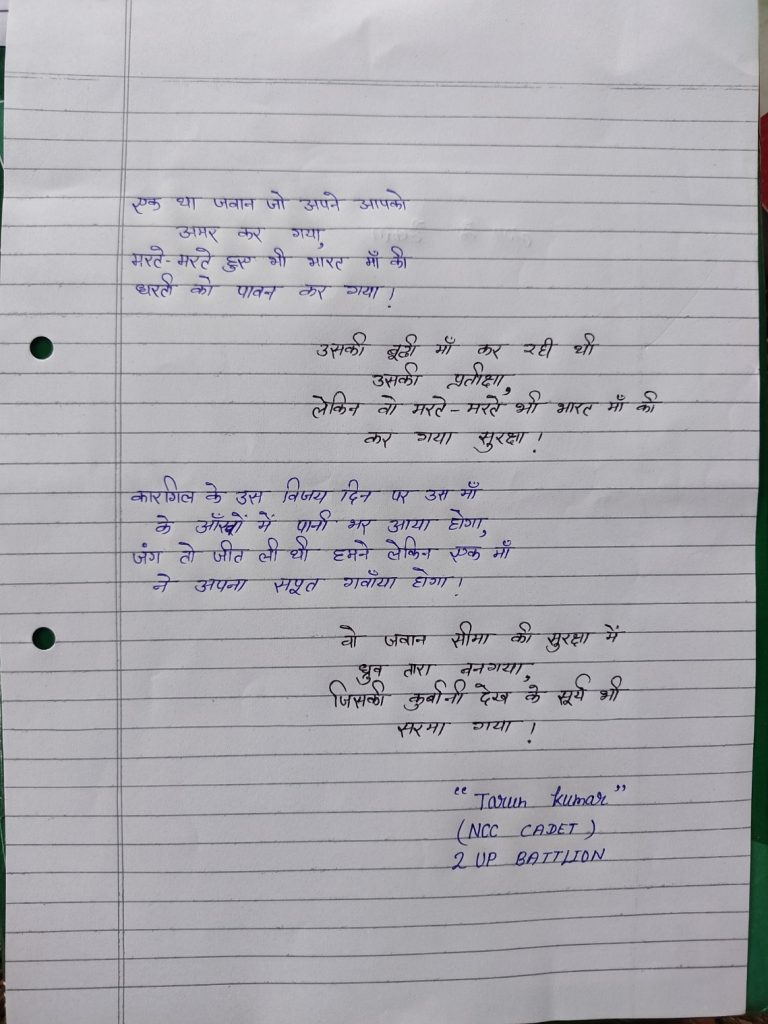 एक था जवान जो अपने आपको
अमर कर गया,
मरते-मरते हुए भी भारत माँ की
धरती को पावन कर गया!
उसकी बूढ़ी माँ कर रही थी
उसकी प्रतीक्षा,
लेकिन वो मरते-मरते भी भारत माँ की
कर गया सुरक्षा!
कारगिल के उस विजय दिन पर उस माँ
के आँखों में पानी भर आया होगा,
जंग तो जीत ली थी हमने लेकिन एक माँ
ने अपना सपूत गवाँया होगा!
वो जवान सीमा की सुरक्षा में
ध्रुव तारा बनगया,
जिसकी कुर्बानी देख के सूर्य भी
सरमा गया!
"Tarun Kumar"
(NCC CADET)
2 UP BATTLION